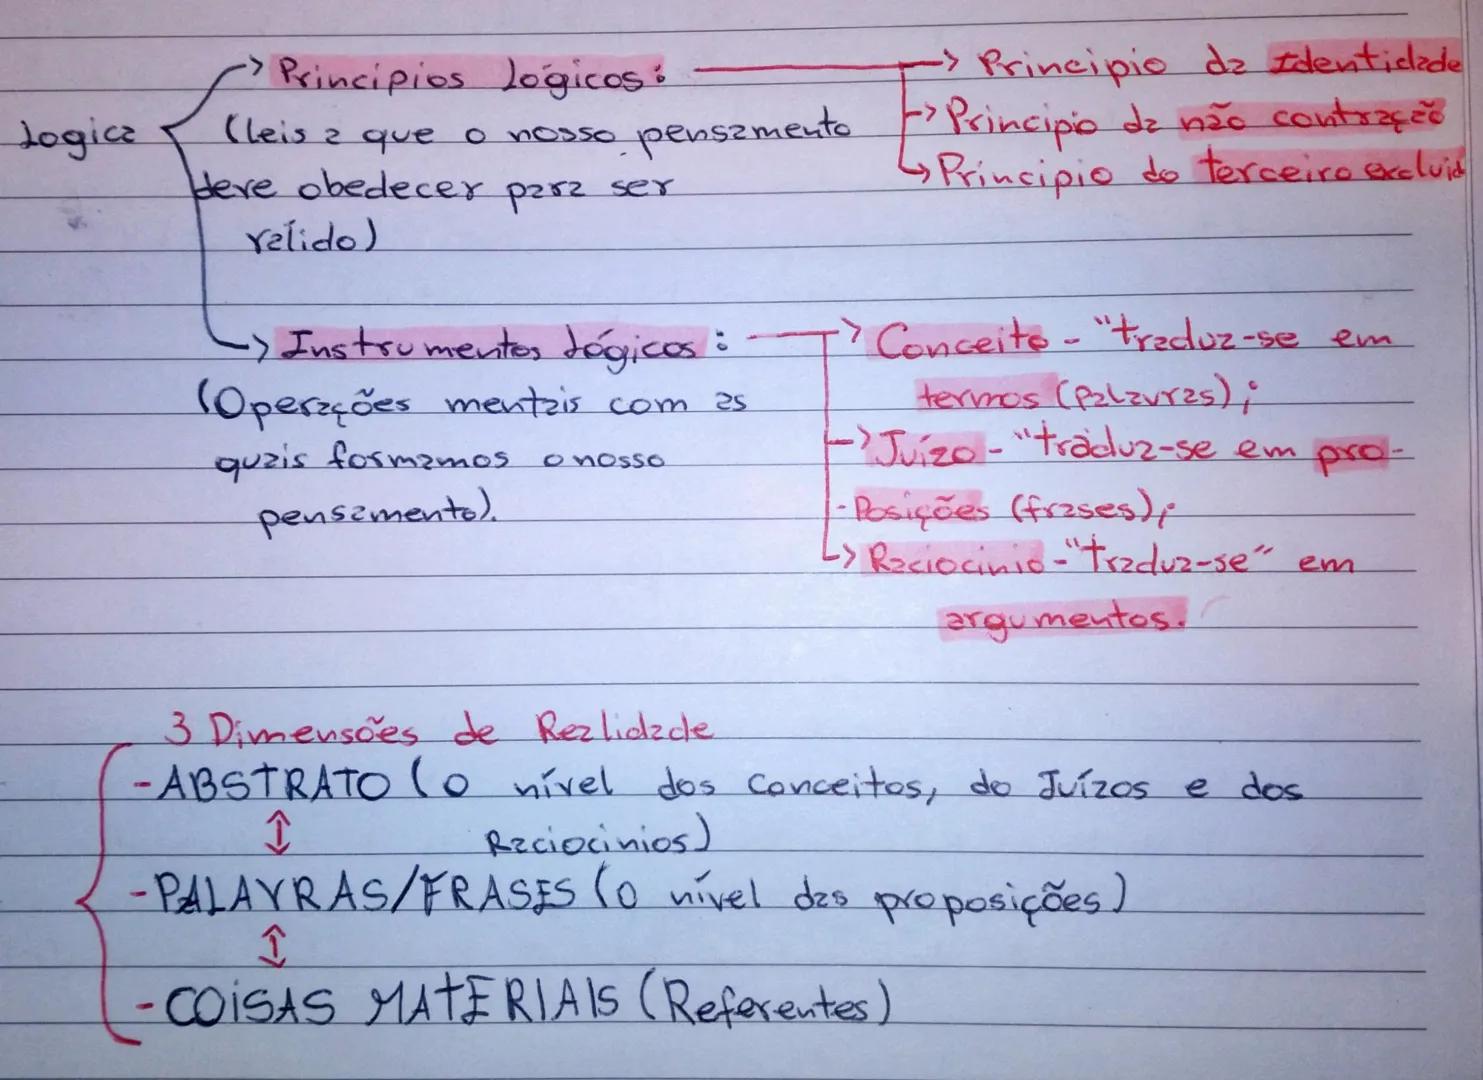 Logica
-> Principios Lógicos:
(leis a que o nosso pensamento
deve obedecer para ser
valido)
-> Principio da Identidade
-> Principio da não contração
-> Principio do terceiro excluid
-> Instrumentos Lógicos:
(Operações mentais com as
quais formamos o nosso
pensamento).
-> Conceito - "traduz-se em
termos (palavras);
-> Juízo - "traduz-se em pro-
-Posições (frases);
-> Raciocinio - "traduz-se" em
argumentos.
3 Dimensões de Realidade
- ABSTRATO (o nível dos conceitos, do Juízos e dos
Raciocinios)
- PALAVRAS/FRASES (o nível das proposições)
- COISAS MATERIAIS (Referentes)